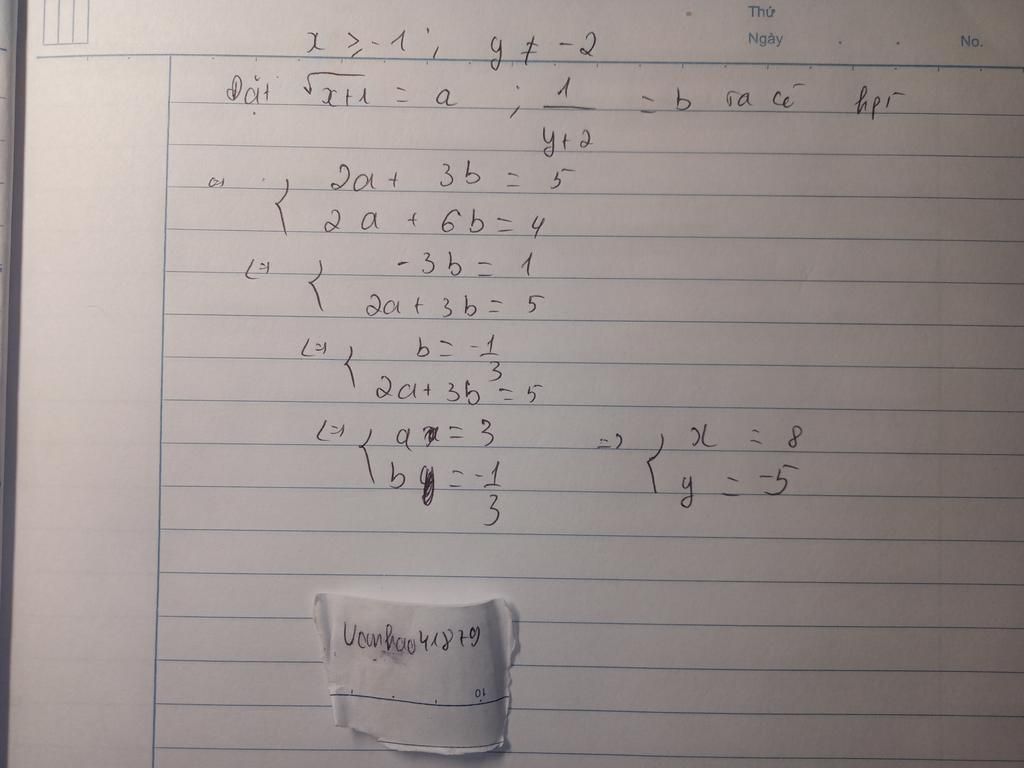 Thứ
Ngày . . No.
x ≥ -1 ; y ≠ -2
Đặt √x+1 = a ; 1/y+2 = b ta có hpt
⇔ { 2a + 3b = 5
2a + 6b = 4
⇔ { -3b = 1
2a + 3b = 5
⇔ { b = -1/3
2a + 3b = 5
⇔ { a = 3 ⇒ { x = 8
b = -1/3 y = -5
Vanhao41879
10